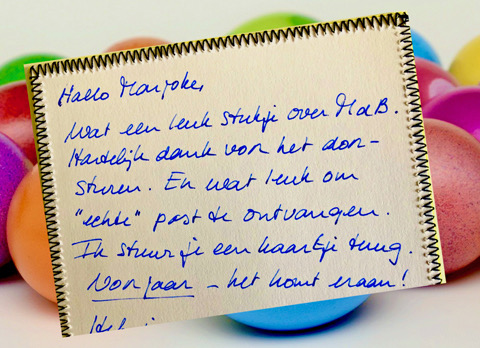 Hallo Marjoke,
Wat een leuk stukje over MdB.
Hartelijk dank voor het door-
sturen. En wat leuk om
"echte" post te ontvangen.
Ik stuur je een kaartje terug.
Voorjaar – het komt eraan!